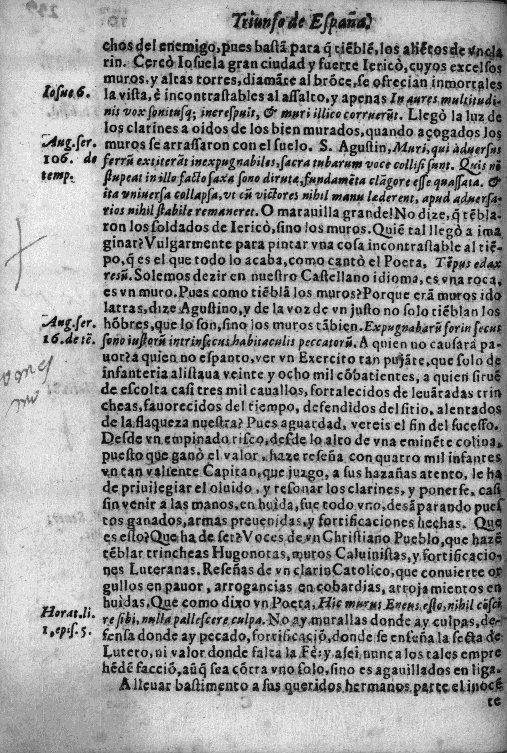 Triunfo de España.
chos del enemigo, pues bastā para q̄ tiēblē, los aliētos de vn cla
rin. Cercò Iosue la gran ciudad y fuerte Iericò, cuyos excelsos
muros, y altas torres, diamāte al brōce, se ofrecian inmortales
Iosue 6.
la vista, è incontrastables al assalto, y apenas In aures multitudi-
nis vox sonitusq; increpuit, & muri illico corruerūt. Llegò la luz de
los clarines a oidos de los bien murados, quando açogados los
Aug. ser.
106. de
temp.
muros se arrassaron con el suelo. S. Agustin, Muri, qui aduersus
ferrū extiterāt inexpugnabiles, sacra tubarum voce collisi sunt. Quis nō
stupeat in illo facto saxa sono diruta, fundamēta clāgore esse quassata. &
ita vniuersa collapsa, vt cū victores nihil manu læderent, apud aduersa-
rios nihil stabile remaneret. O marauilla grande! No dize, q̄ tēbla-
ron los soldados de Iericò, sino los muros. Quiē tal llegò a ima
ginar? Vulgarmente para pintar vna cosa incontrastable al tiē-
po, q̄ es el que todo lo acaba, como cantò el Poeta, Tēpus edax
resū. Solemos dezir en nuestro Castellano idioma, es vna roca,
es vn muro. Pues como tiēblā los muros? Porque erā muros ido
latras, dize Agustino, y de la voz de vn justo no solo tiēblan los
Aug. ser.
16. de tē.
hōbres, que lo son, sino los muros tābien. Expugnabarū forinsecus
sono iustorū intrinsecus habitaculis peccatorū. A quien no causarà pa-
uor? a quien no espanto, ver vn Exercito tan pujāte, que solo de
infanteria alistaua veinte y ocho mil cōbatientes, a quien siruē
de escolta casi tres mil cauallos, fortalecidos de leuātadas trin
cheas, fauorecidos del tiempo, defendidos del sitio, alentados
de la flaqueza nuestra? Pues aguardad, vereis el fin del sucesso.
Desde vn empinado risco, desde lo alto de vna eminēte colina,
puesto que ganò el valor, haze reseña con quatro mil infantes
vn tan valiente Capitan, que juzgo, a sus hazañas atento, le ha
de priuilegiar el oluido, y resonar los clarines, y ponerse, casi
sin venir a las manos, en huida, fue todo vno, desāparando pues
tos ganados, armas preuenidas, y fortificaciones hechas. Que
es esto? Que ha de ser? Voces de vn Christiano Pueblo, que hazē
tēblar trincheas Hugonotas, muros Caluinistas, y fortificacio-
nes Luteranas. Reseñas de vn clarin Catolico, que conuierte or
gullos en pauor, arrogancias en cobardias, arrojamientos en
Horat. li.
1, epis. 5.
huidas, Que como dixo vn Poeta, Hic murus Eneus esto, nihil cōsci
re sibi, nulla pallescere culpa. No ay murallas donde ay culpas, de-
fensa donde ay pecado, fortificaciō, donde se enseña la secta de
Lutero, ni valor donde falta la Fè: y asi nunca los tales empre
hēdē facciō, aūq̄ sea cōtra vno solo, sino es agauillados en liga.
A lleuar bastimento a sus queridos hermanos parte el inocē
te